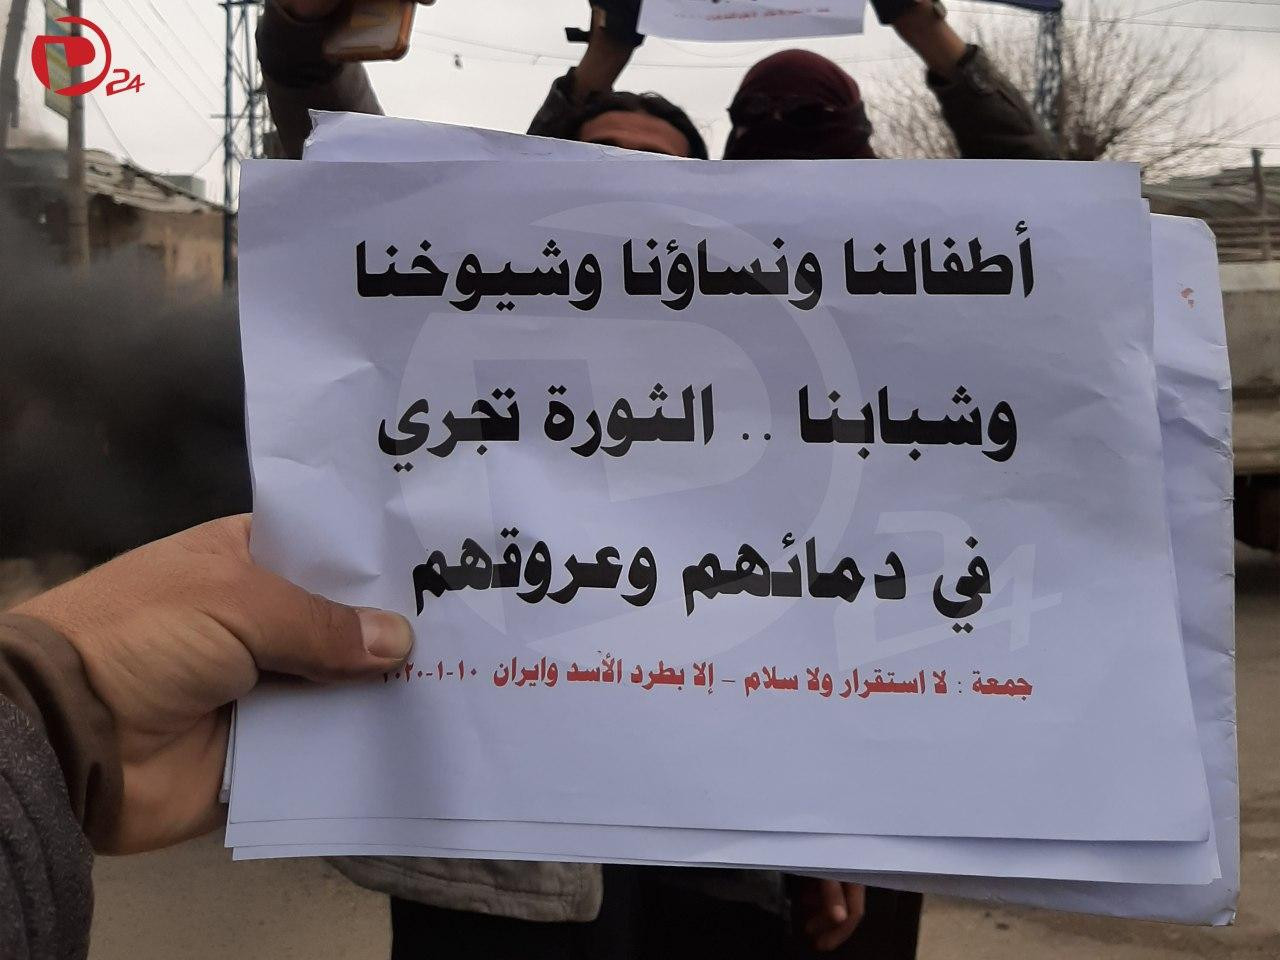 24
أطفالنا ونساؤنا وشيوخنا
وشبابنا .. الثورة تجري
في دمائهم وعروقهم
جمعة : لا استقرار ولا سلام - إلا بطرد الأسد وايران ١٠-١-٢٠٢٠
24